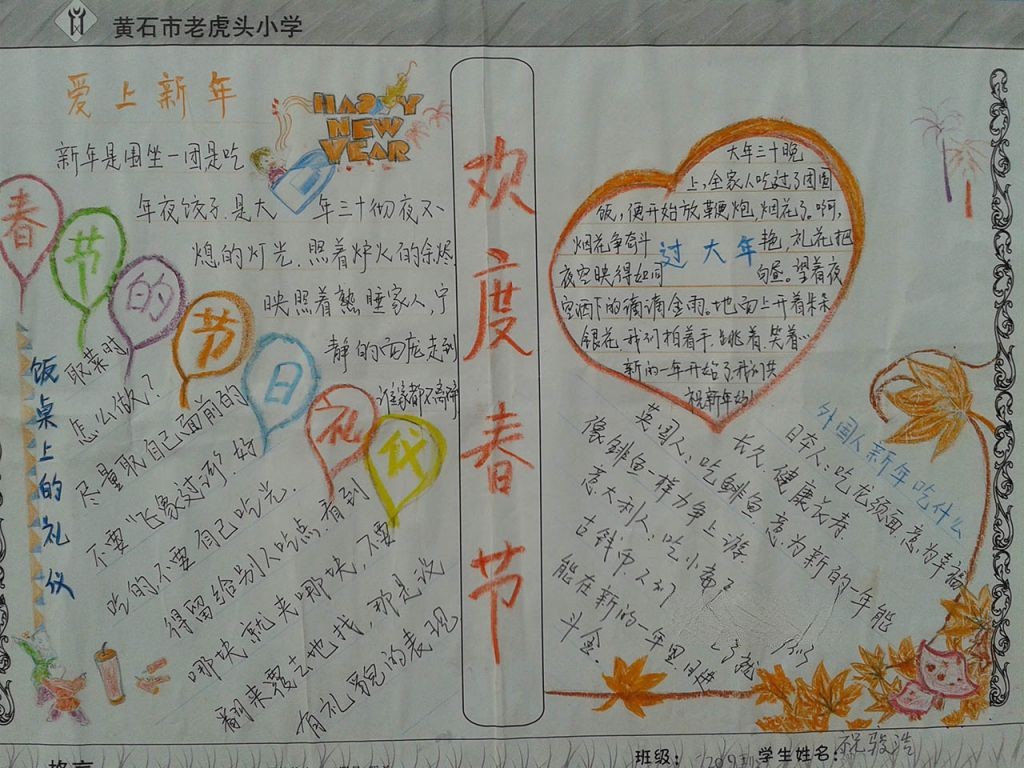 黄石市老虎头小学
爱上新年
HAPPY
NEW
YEAR
新年是围坐一团是吃
年夜饺子.是大 年三十彻夜不
熄的灯光.照着炉火的余烬
映照着熟睡家人,宁
静的面庞走到
谁家都不高呼
春节的节日礼仪
饭桌上的礼仪
取菜时
怎么做?
尽量取自己面前的
不要“飞象过河”.好
吃的不要自己吃光.
得留给别人吃点.看到
哪块就来哪块,不要
翻来覆去地找,那是没
有礼貌的表现
欢度春节
大年三十晚
上,全家人吃过了团圆
饭,便开始放鞭炮.烟花了.啊,
烟花争奇斗 艳,礼花把
过大年
夜空映得如同 白昼。望着夜
空洒下的滴滴金雨。地面上开着朱朵
银花.我们拍着手.跳着.笑着…
新的一年开始了我们共
祝新年好
外国人新年吃什么
日本人:吃龙须面,意为幸福
长久.健康长寿
英国人:吃鲱鱼.意为新的一年能
像鲱鱼一样力争上游.
意大利人:吃小
古钱币.人们
能在新的一年里日进
斗金.
格言
班级: 学生姓名:祝骏浩